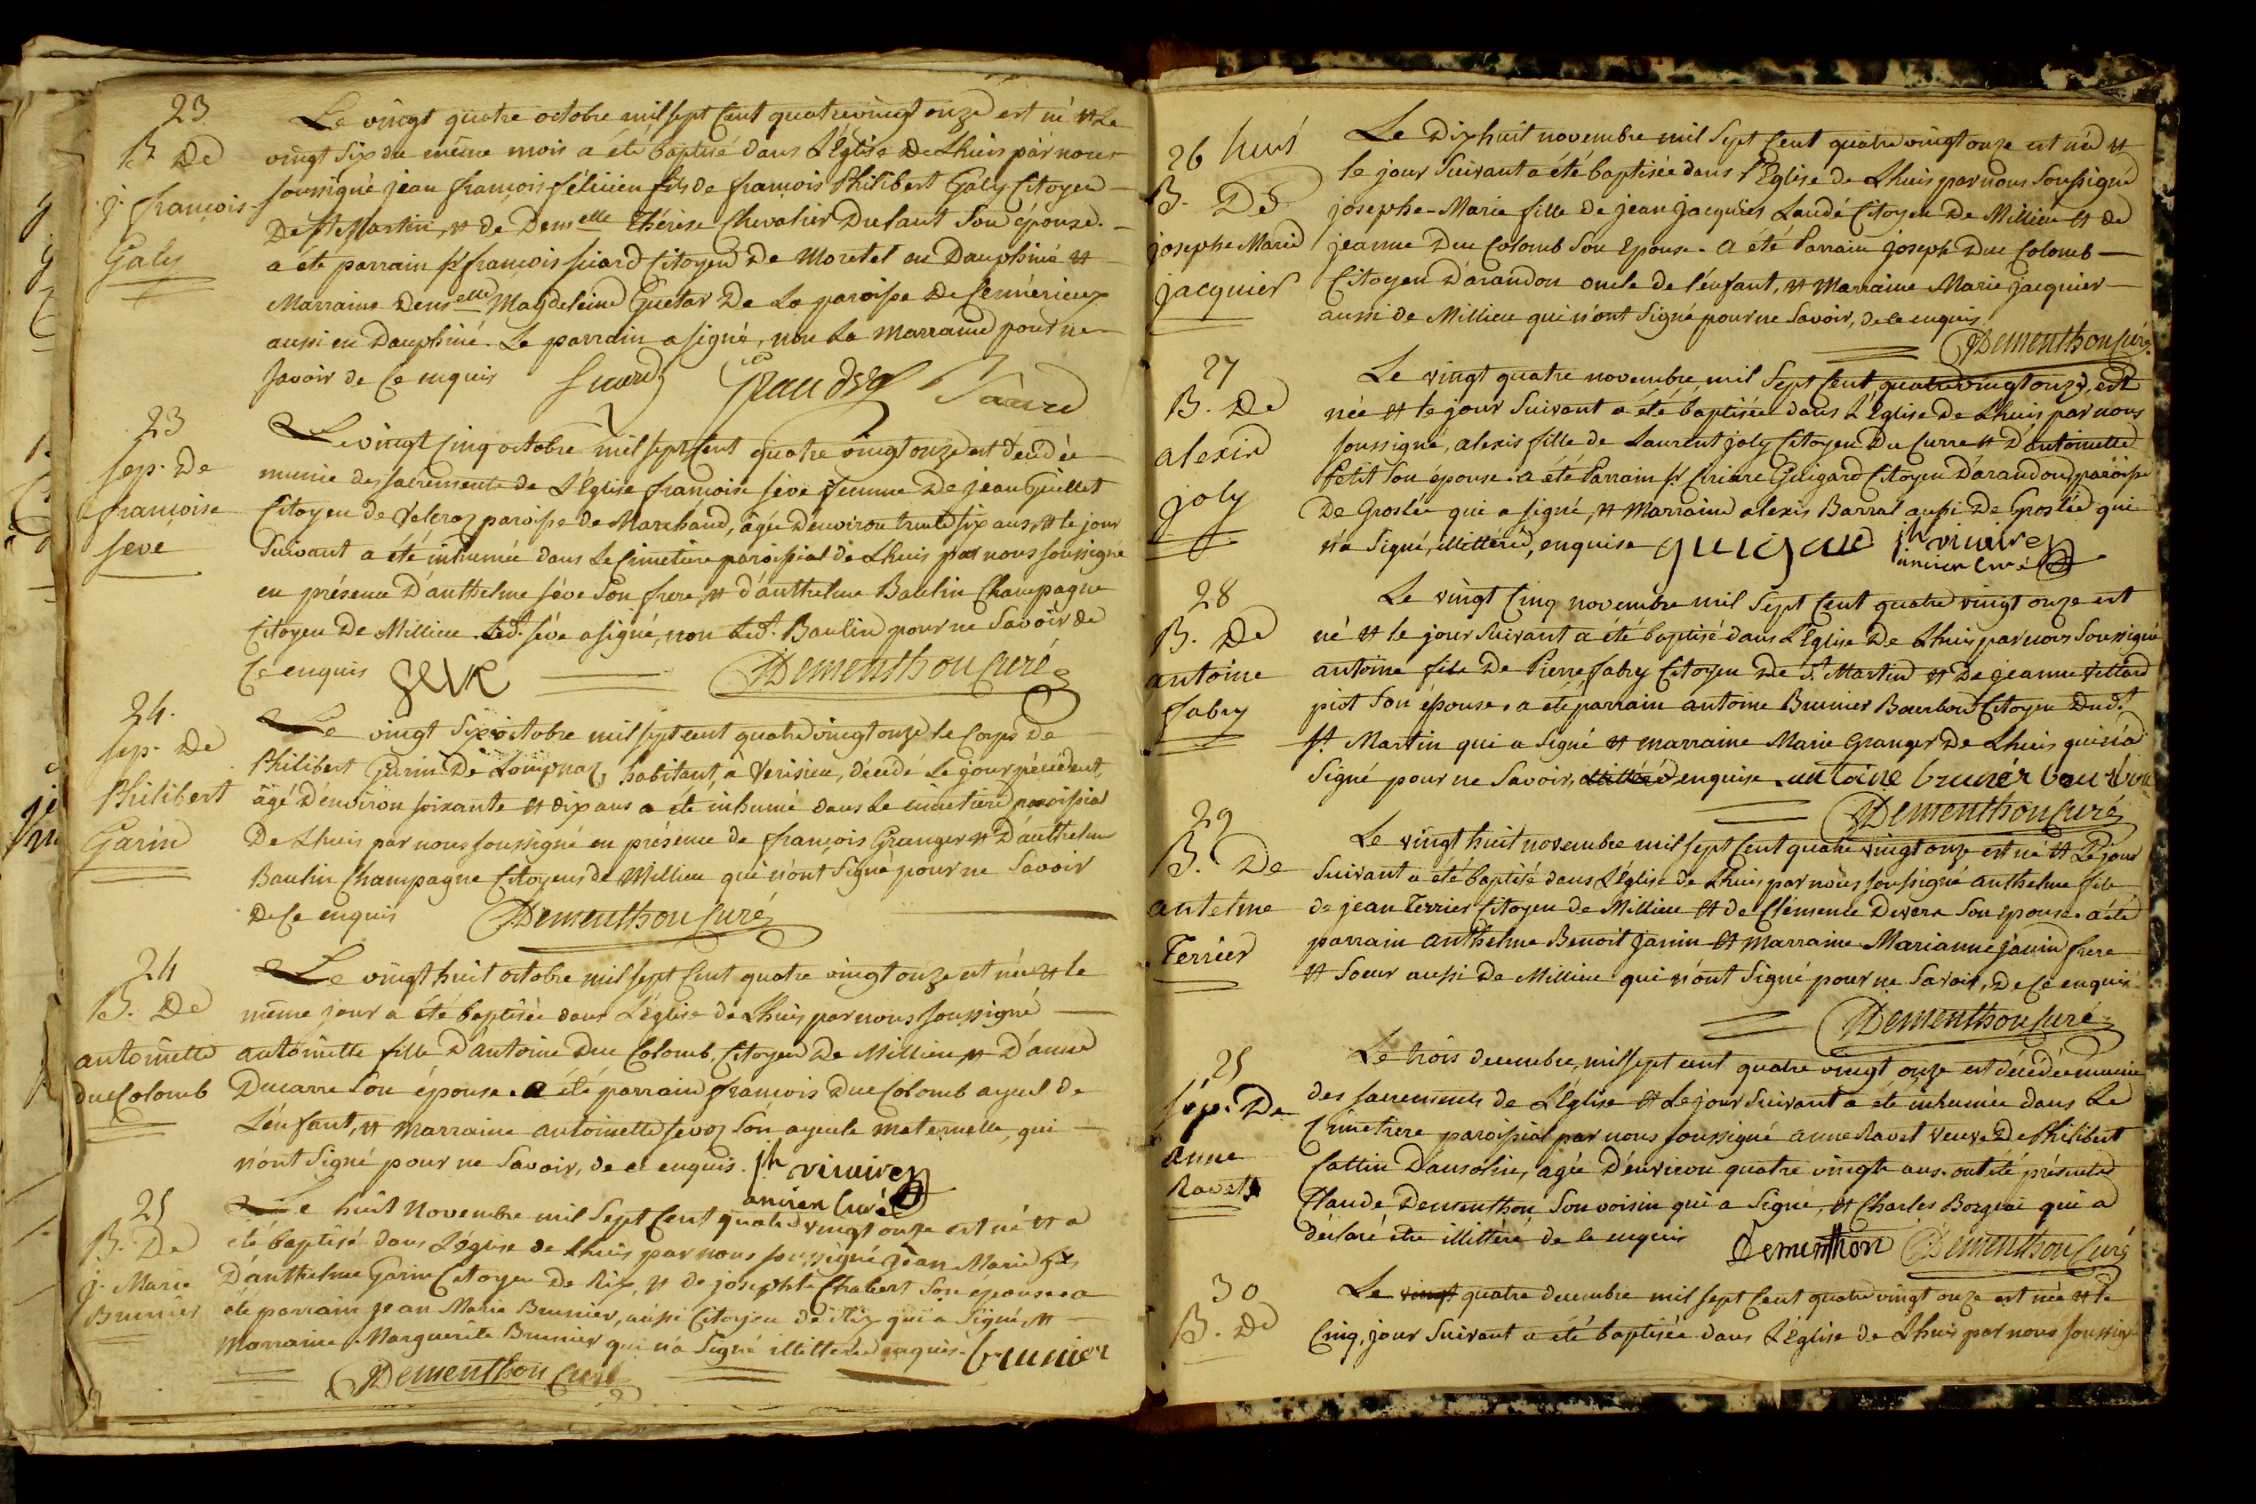 23
B. De
j. françois
Galy
Le vingt quatre octobre mil sept Cent quatrevingt onze est né et Le
vingt Six du même mois a été baptisé dans L'Eglise De Lhuis par nous
soussigné jean françois félicien fils de françois Philibert Galy Citoyen
De St Martin, et de Demelle Thérèse Chevalier Dufaut Son épouse.
a été parrain Sr françois Suard Citoyen de Moretel en Dauphiné et
Marraine Demelle Magdeleine Guétat De La paroisse De
aussi en Dauphiné. Le parrain a signé, non La Marraine pour ne
Savoir de Ce enquis Suard
23
sep. De
françoise
seve
Le vingt Cinq octobre mil sept Cent quatre vingt onze est décédée
munie des sacrements de L'Eglise françoise séve femme De jean Guillet
Citoyen de Veleroz paroisse de Marchand, âgée D'environ trente six ans, et le jour
Suivant a été inhumée dans Le Cimetiere paroissial de Lhuis par nous soussigné
en présence D'anthelme séve Son frere, et d'anthelme Baulin Champagne
Citoyen De Millieu. Led. séve a signé, non Led. Baulin pour ne Savoir de
Ce enquis seve Dementhon Curé
24.
sep. De
Philibert
Garin
Le vingt Six octobre mil sept cent quatre vingt onze le Corps de
Philibert Garin De Lompnaz, habitant, à Verisieu, décédé Le jour précédent,
âgé D'environ soixante et dix ans a été inhumé dans Le cimetiere paroissial
De Lhuis par nous soussigné en présence de françois Granger et D'anthelme
Baulin Champagne Citoyens de Millieu qui n'ont Signé pour ne Savoir
De Ce enquis Dementhon Curé
24
B. De
antoinette
duc Colomb
Le vingt huit octobre mil sept Cent quatre vingt onze est née et le
même jour a été baptisée dans L'Eglise de Lhuis par nous soussigné
antoinette fille D'antoine Duc Colomb, Citoyen De Millieu et D'anne
Ducarre Son épouse. a été parrain françois Duc Colomb ayeul de
L'énfant, et Marraine antoinette Sevoz Son ayeule maternelle, qui
n'ont Signé pour ne Savoir, de ce enquis. jh
ancien Curé
25
B. De
j. Marie
Brunier
Le huit Novembre mil Sept Cent quatre vingt onze est né et a
été baptisé dans L'église de Lhuis par nous soussigné jean Marie fils
D'anthelme Garin Citoyen De Rix, et de josephte Chabert Son épouse. a
été parrain jean Marie Brunier, aussi Citoyen de Rix qui a Signé, et
Marraine Marguerite Brunier qui n'a Signé illittérée enquise. brunier
Dementhon Curé
26
B. De
josephe Marie
jacquier
Le Dixhuit novembre mil Sept Cent quatre vingt onze est née et
le jour Suivant a été baptisée dans l'Eglise de Lhuis par nous Soussigné
josephe-Marie fille de jean jacquier Laudé Citoyen De Millieu et de
jeanne Duc Colomb Son Epouse. a été Parrain joseph Duc Colomb
Citoyen D'arandon oncle de l'énfant, et Marraine Marie jacquier
aussi de Millieu qui n'ont Signé pour ne Savoir, de ce enquis
Dementhon Curé.
27
B. De
alexis
joly
Le vingt quatre novembre mil Sept Cent quatre vingt onze, est
née et le jour Suivant a été baptisée dans L'Eglise de Lhuis par nous
soussigné, alexis fille de Laurent joly Citoyen Du Curre et D'antoinette
Petit Son épouse. a été Parrain Sr Guigard Citoyen D'arandon, paroisse
De Groslée qui a signé, et Marraine alexis Barral aussi De Groslée qui
n'a Signé, illittérée, enquise guigard jh
ancien Curé
28
B. De
antoine
fabry
Le vingt Cinq novembre mil Sept Cent quatre vingt onze est
né et le jour Suivant a été baptisé dans L'Eglise De Lhuis par nous Soussigné
antoine fils De Pierre fabry Citoyen De St. Martin et De jeanne Villard
piot Son épouse. a été parrain antoine Brunier Bourbon Citoyen Dud.
St Martin qui a Signé et marraine Marie Granger De Lhuis qui n'a
Signé pour ne Savoir, illittérée enquise. antoine brunér bourbon
Dementhon Curé
29
B. De
antelme
Terrier
Le vingt huit novembre mil sept Cent quatre vingt onze est né et Le jour
Suivant a été baptisé dans L'église de Lhuis par nous soussigné anthelme fils
de jean Terrier Citoyen de Millieu et de Clémence Devera Son épouse. a été
parrain anthelme Benoit janin et marraine Marianne janin frere
et Soeur aussi De Millieu qui n'ont Signé pour ne Savoir, De Ce enquis
Dementhon Curé
25
sép. De
anne
Ravet
Le trois decembre, mil sept cent quatre vingt onze est décédée munie
des sacrements de L'Eglise et Le jour Suivant a été inhumée dans Le
Cimetiere paroissial par nous soussigné anne Ravet Veuve De Philibert
Cattin D'ansolin, agée D'environ quatre vingts ans. ont été présents
Claude Dementhon Son voisin qui a Signé, et Charles qui a
déclaré être illittéré de Ce enquis Dementhon Dementhon Curé
30
B. De
Le vingt quatre decembre mil sept Cent quatre vingt onze est née et le
Cinq, jour Suivant a été baptisée dans L'Eglise de Lhuis par nous soussigné